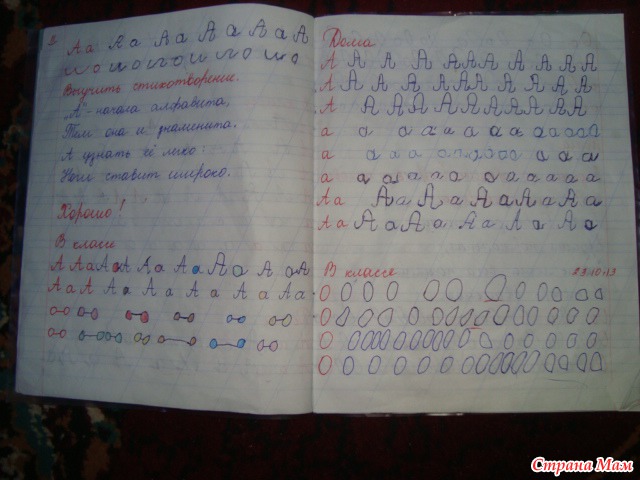 Аа Аа Аа А а А а А а А
Выучить стихотворение.
„А"- начала алфавита,
Тем она и знаменита.
А узнать её легко:
Ноги ставит широко.
Хорошо!
В классе
А А а А а А А а А а А а А а А
А а А А а А а А а А а А а
Дома
А А А А А А А А А А А
А А А А А А А А А А А
А А А А А А А А А А
а а а а а а а а а а а
а а а а а а а а а а а
а а а а а а а а а а а
А а А а А а А а А а А а
А а А а А а А а А а А а
В классе 29.10.13
Страна Мам